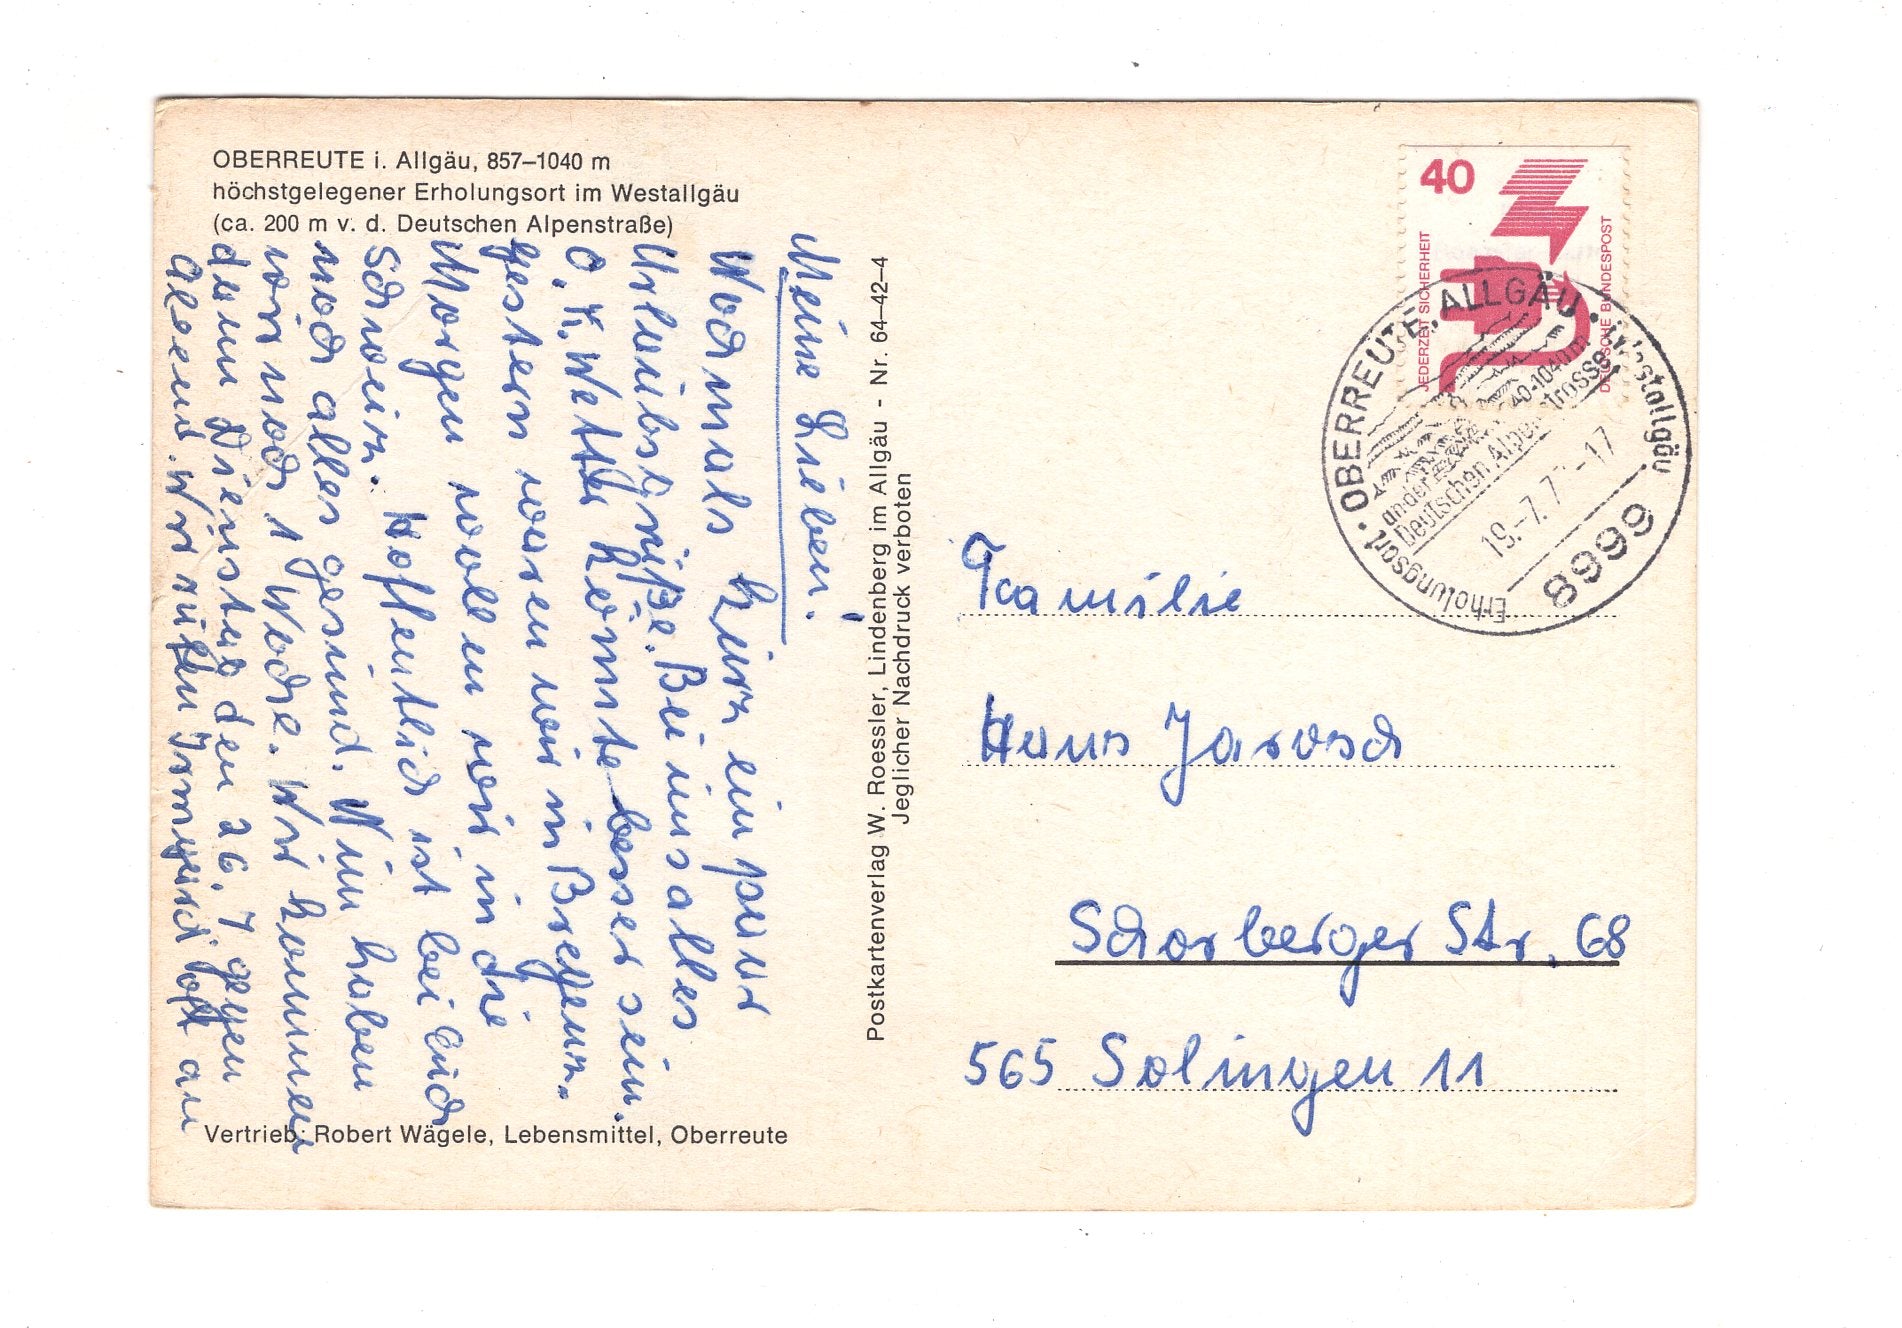 OBERREUTE i. Allgäu, 857–1040 m
höchstgelegener Erholungsort im Westallgäu
(ca. 200 m v. d. Deutschen Alpenstraße)
Meine Lieben!
Nochmals kurz ein paar
Urlaubsgrüße. Bei uns alles
O.K. Wetter könnte besser sein.
Gestern waren wir in Bregenz.
Morgen wollen wir in die
Schweiz. Hoffentlich ist bei Euch
noch alles gesund. Nun haben
wir noch 1 Woche. Wir kommen
denn Dienstag den 26. 7 gegen
Abend. Wir rufen Irmgard oft an
Vertrieb: Robert Wägele, Lebensmittel, Oberreute
Postkartenverlag W. Roessler, Lindenberg im Allgäu - Nr. 64–42–4
Jeglicher Nachdruck verboten
40
JEDERZEIT SICHERHEIT
DEUTSCHE BUNDESPOST
OBERREUTE, ALLGÄU · Westallgäu ·
Erholungsort ·
40-1040m
an der
Deutschen Alpenstrosse
19.-7.7 -17
8999
Familie
Hans Jarosch
Schorberger Str. 68
565 Solingen 11